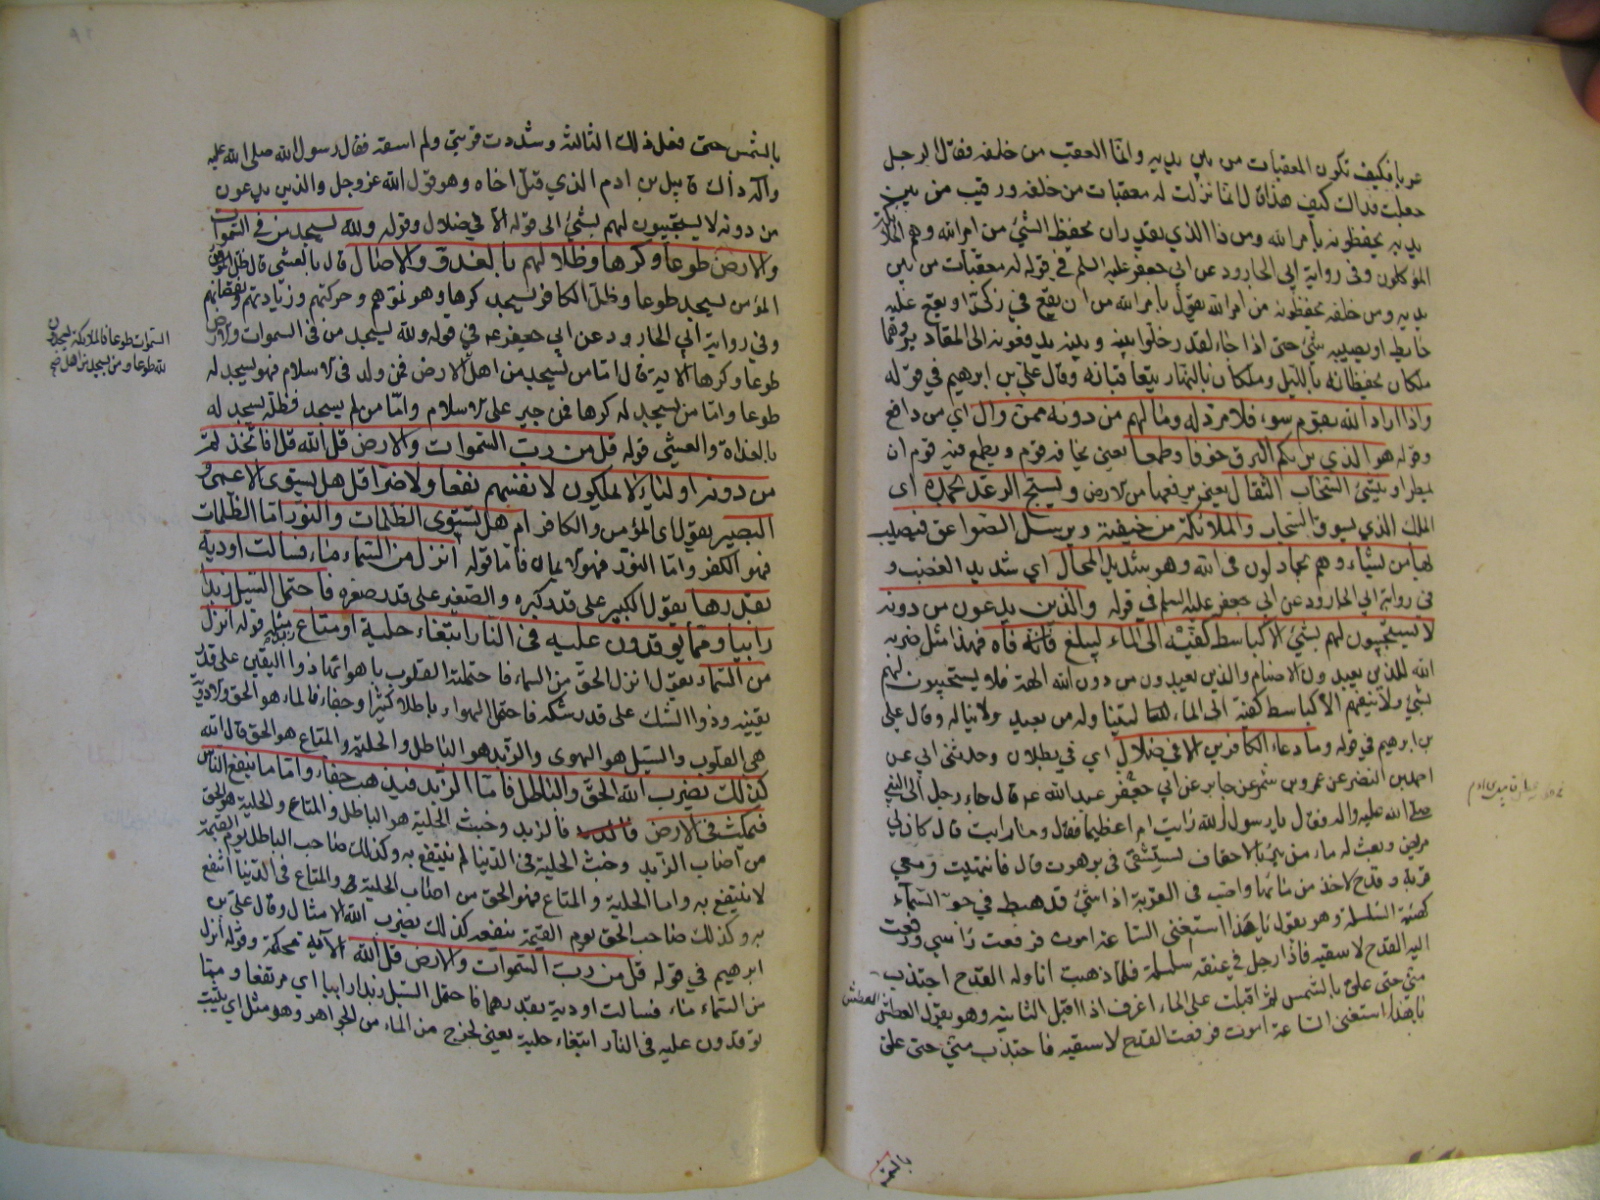 عربا فكيف تكون المعقبات من بين يديه وانما العقب من خلفه فقال الرجل
جعلت فداك كيف هذا قال انما نزلت له معقبات من خلفه ورقيب من بين
يديه يحفظونه بامر الله ومن ذا الذي يقدر ان يحفظ الشئ من امر الله وهم الملائكة
الموكلون وفى رواية ابي الجارود عن ابي جعفر عليه السلم في قوله له معقبات من بين
يديه ومن خلفه يحفظونه من امر الله يقول بامر الله من ان يقع في ركى او يقع عليه
حايط او يصيبه شئ حتى اذا جاء القدر خلوا بينه وبينه يدفعونه الى المقادير وهما
ملكان يحفظانه بالليل وملكان بالنهار يتعاقبانه وقال علي بن ابرهيم في قوله
واذا اراد الله بقوم سوء فلا مرد له وما لهم من دونه من وال اي من دافع
وقوله هو الذي يريكم البرق خوفا وطمعا يعني يخافه قوم ويطمع فيه قوم ان
يمطروا وينشئ السحاب الثقال يعني يرفعها من الارض ويسبح الرعد بحمده اى
الملك الذي يسوق السحاب والملائكة من خيفته ويرسل الصواعق فيصيب
بها من يشاء وهم يجادلون فى الله وهو شديد المحال اي شديد الغضب و
فى رواية ابي الجارود عن ابي جعفر عليه السلم في قوله والذين يدعون من دونه
لا يستجيبون لهم بشئ الا كباسط كفيه الى الماء ليبلغ فاه فهذا مثل ضربه
الله للذين يعبدون الاصنام والذين يعبدون من دون الله الهة فلا يستجيبون لهم
بشئ ولا ينفعهم الا كباسط كفيه الى الماء ليتناوله من بعيد ولا يناله وقال علي
بن ابرهيم في قوله وما دعاء الكافرين الا في ضلال اي في بطلان وحدثني ابي عن
احمد بن النضر عن عمرو بن شمر عن جابر عن ابي جعفر قال جاء رجل الى النبي
صلى الله عليه واله فقال يا رسول الله رايت امرا عظيما فقال وما رايت قال كان لي
مريض ونعت له ماء من بئر بالاحقاف يستشفى في برهوت قال فانتهيت ومعي
قربة وقدح لاخذ من مائها واصب فى القربة اذا شئ قد هبط في جو السماء
كهيئة السلسلة وهو يقول يا هذا استقني الساعة اموت فرفعت راسي ورفعت
اليه القدح لاسقيه فاذا رجل في عنقه سلسلة فلما ذهبت اناوله القدح اجتذب
مني حتى علق بالشمس ثم اقبلت على الماء اغرف اذ اقبل الثانية وهو يقول العطش العطش
يا هذا استقني الساعة اموت فرفعت القدح لاسقيه فاجتذب مني حتى علق
بالشمس حتى فعل ذلك الثالثة وشددت قربتي ولم اسقه فقال رسول الله صلى الله عليه
واله ذاك قابيل بن ادم الذي قتل اخاه وهو قول الله عز وجل والذين يدعون
من دونه لا يستجيبون لهم بشئ الى قوله الا في ضلال وقوله ولله يسجد من في السموات
والارض طوعا وكرها وظلالهم بالغدو والاصال قال بالعشي قال ظل المؤمن
المؤمن يسجد طوعا وظل الكافر يسجد كرها وهو نموهم وحركتهم وزيادتهم ونقصانهم
وفي رواية ابي الجارود عن ابي جعفر ع في قوله ولله يسجد من في السموات والارض
طوعا وكرها الاية قال اما من يسجد من اهل الارض فمن ولد في الاسلام فهو يسجد له
طوعا واما من يسجد له كرها فمن جبر على الاسلام واما من لم يسجد فظله يسجد له
بالغداة والعشي قوله قل من رب السموات والارض قل الله قل افاتخذتم
من دونه اولياء لا يملكون لانفسهم نفعا ولا ضرا قل هل يستوى الاعمى و
البصير يقول اى المؤمن والكافر ام هل تستوى الظلمات والنور اما الظلمات
فهو الكفر واما النور فهو الايمان فاما قوله انزل من السماء ماء فسالت اودية
بقدرها يقول الكبير على قدر كبره والصغير على قدر صغره فاحتمل السيل زبدا
رابيا ومما يوقدون عليه فى النار ابتغاء حلية او متاع زبد مثله قوله انزل
من السماء يقول انزل الحق من السماء فاحتملته القلوب باهوائها ذو اليقين على قدر
يقينه وذوا الشك على قدر شكه فاحتمل الهواء باطلا كثيرا وجفاء فالماء هو الحق والاودية
هي القلوب والسيل هو الهوى والزبد هو الباطل والحلية والمتاع هو الحق قال الله
كذلك يضرب الله الحق والباطل فاما الزبد فيذهب جفاء واما ما ينفع الناس
فيمكث فى الارض فالزبد وخبث الحلية هو الباطل والمتاع والحلية هو الحق
من اصاب الزبد وخبث الحلية فى الدنيا لم ينتفع به وكذلك صاحب الباطل يوم القيمة
لا ينتفع به واما الحلية والمتاع فهو الحق من اصاب الحلية والمتاع فى الدنيا انتفع
به وكذلك صاحب الحق يوم القيمة ينفعه كذلك يضرب الله الامثال وقال علي بن
ابرهيم في قوله قل من رب السموات والارض قل الله الاية محكمة وقوله انزل
من السماء ماء فسالت اودية بقدرها فاحتمل السيل زبدا رابيا اي مرتفعا ومما
توقدون عليه فى النار ابتغاء حلية يعني يخرج من الماء من الجواهر وهو مثل اي يثبت
السموات طوعا فالملائكة يسجدون
لله طوعا ومن يسجد من اهل